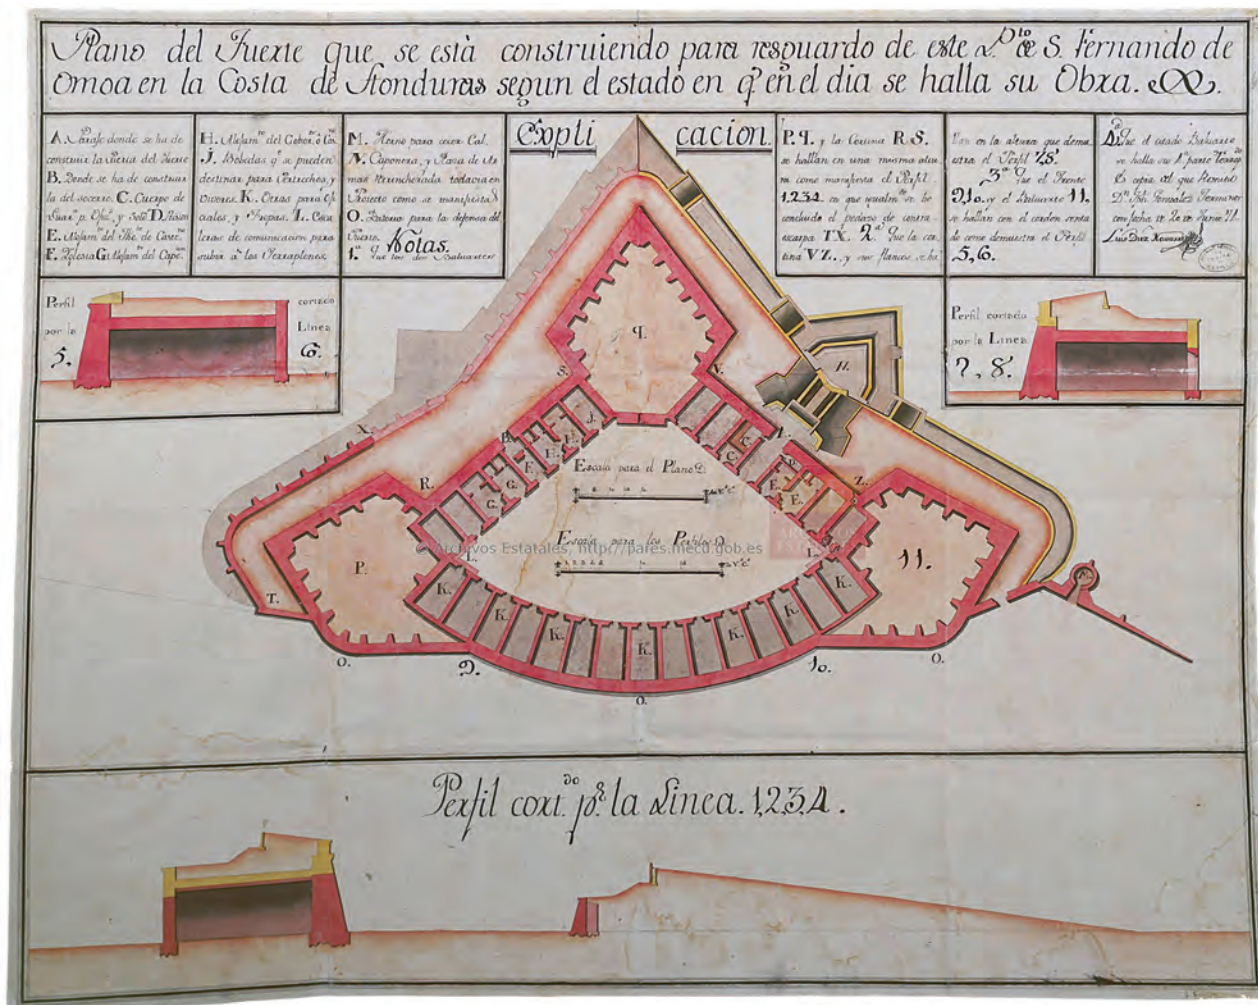 Plano del Fuerte que se està construiendo para resguardo de este A.to de S. Fernando de
Omoa en la Costa de Honduras segun el estado en q.e en el dia se halla su Obra.
Expli cacion.
A. Paraje donde se ha de
construir la Puerta del Fuerte
B. Donde se ha de construir
la del socorro. C. Cuerpo de
Guar.a p.a Ofic.s y Sold.s D.
E. Alojam.to del The.te de
F. Yglesia G. Alojam.to del Cape.
H. Alojam.to del Gober.or ô
J. Bobedas q.e se pueden
destinar para Pertrechos, y
Viveres. K. Otras para Ofi
ciales, y Tropas. L. Esca
leras de comunicacion para
subir a los Terraplenes.
M. Horno para cocer Cal.
N. Caponera, y Plaza de Ar
mas Atrincherada todavia en
Proiecto como se manifiesta
O. Bateria para la defensa del
Puerto. Notas.
1.a que los dos Baluartes
P. q. y la Cortina R. S.
se hallan en una misma altu
ra como manifiesta el Perfil
1.2.3.4. en que igualm.te se be
concluido el pedazo de contra
escarpa TX. 2.a Que la cor
tina V Z. y sus flancos se ha
llan en la altura que demu
estra el Perfil 7,8.
3.a Que el Frente
9,10. y el Baluarte 11.
se hallan con el cordon senta
do como demuestra el Perfil
5,6.
Que el citado Baluarte
se halla su parte
Es copia del que Remitio
D.n Jph. Gonzalez Fermin
con fecha de 20 de Junio
Luis Diez Navarro
Perfil cortado
por la Linea
5. 6.
Perfil cortado
por la Linea
7, 8.
q.
S. V.
N.
J.
X.
B. H.
H.
E.
F.
G.
G.
C.
C.
D.
E.
E.
R. Z.
Escala para el Plano
Escala para los Perfiles
© Archivos Estatales, http://pares.mecd.gob.es
L. L.
P. 11.
T. M.
K. K. K. K. K. K. K.
O. 9. 10. O.
O.
Perfil cort.do p.r la Linea. 1,2,3,4.